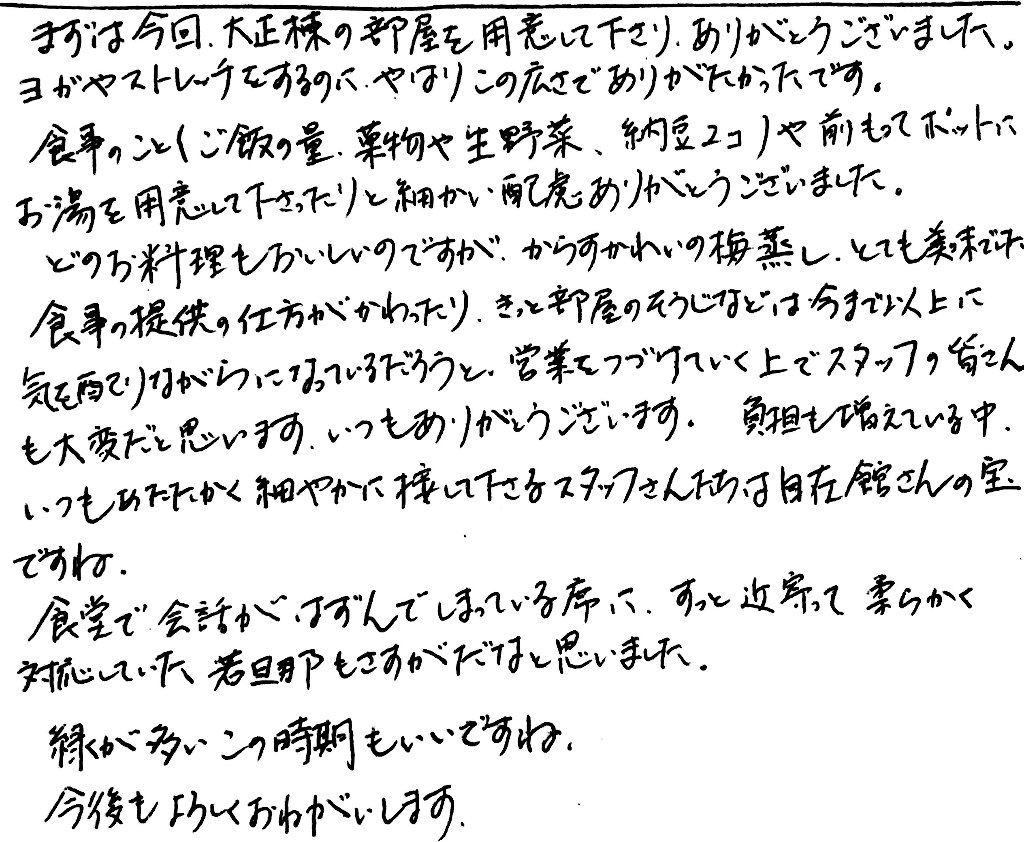 まずは今回、大正棟の部屋を用意して下さり、ありがとうございました。
ヨガやストレッチをするのに、やはりこの広さでありがたかったです。
食事のこと(ご飯の量、薬物や生野菜、納豆2コ)や前もってポットに
お湯を用意して下さったりと細かい配慮ありがとうございました。
どのお料理もおいしいのですが、からすかれいの梅蒸し、とても美味でした
食事の提供の仕方がかわったり、きっと部屋のそうじなどは今まで以上に
気を配りながらになっているだろうと、営業をつづけていく上でスタッフの皆さん
も大変だと思います、いつもありがとうございます。 負担も増えている中、
いつもあたたかく細やかに接して下さるスタッフさんたちは自在館さんの宝
ですね。
食堂で会話がはずんでしまっている席に、すっと近寄って柔らかく
対応していた、若旦那もさすがだなと思いました。
緑が多いこの時期もいいですね。
今後もよろしくおねがいします。